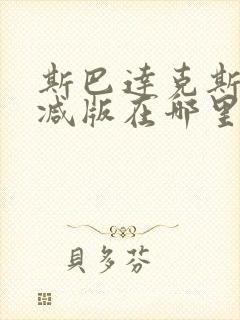 斯巴达克斯
减版在哪里
貝多芬